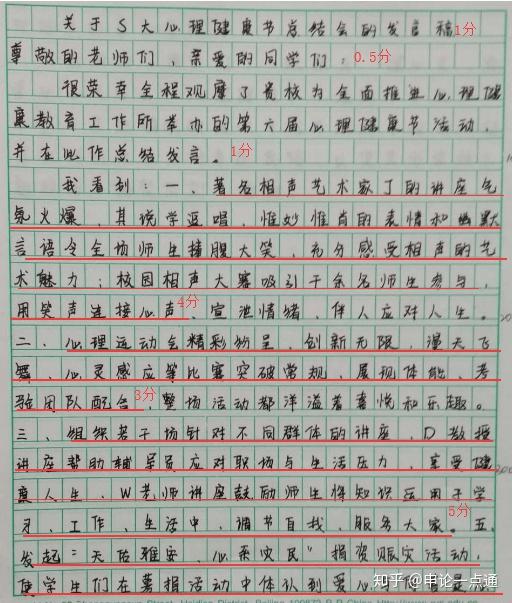 关于S大心理健康节总结会的发言稿 1分
尊敬的老师们，亲爱的同学们： 0.5分
很荣幸全程观摩了贵校为全面推进心理健
康教育工作所举办的第六届心理健康节活动，
并在此作总结发言。 1分
我看到：一、著名相声艺术家丁的讲座气
氛火爆，其说学逗唱，惟妙惟肖的表情和幽默
言语令全场师生捧腹大笑，充分感受相声的艺
术魅力；校园相声大赛吸引千余名师生参与，
用笑声连接心声、宣泄情绪，伴人应对人生。 4分
二、心理运动会精彩纷呈，创新无限，漫天飞
舞、心灵感应等比赛突破常规，展现体能，考
验团队配合，整场活动都洋溢着喜悦和乐趣。 3分
三、组织若干场针对不同群体的讲座，D教授
讲座帮助辅导员应对职场与生活压力，享受健
康人生，W老师讲座鼓励师生将知识运用于学
习、工作、生活中，调节自我，服务大家。五、 5分
发起"天佑雅安，心系灾民"捐资赈灾活动，
使学生们在募捐活动中体认到爱心
知乎 @申论一点通